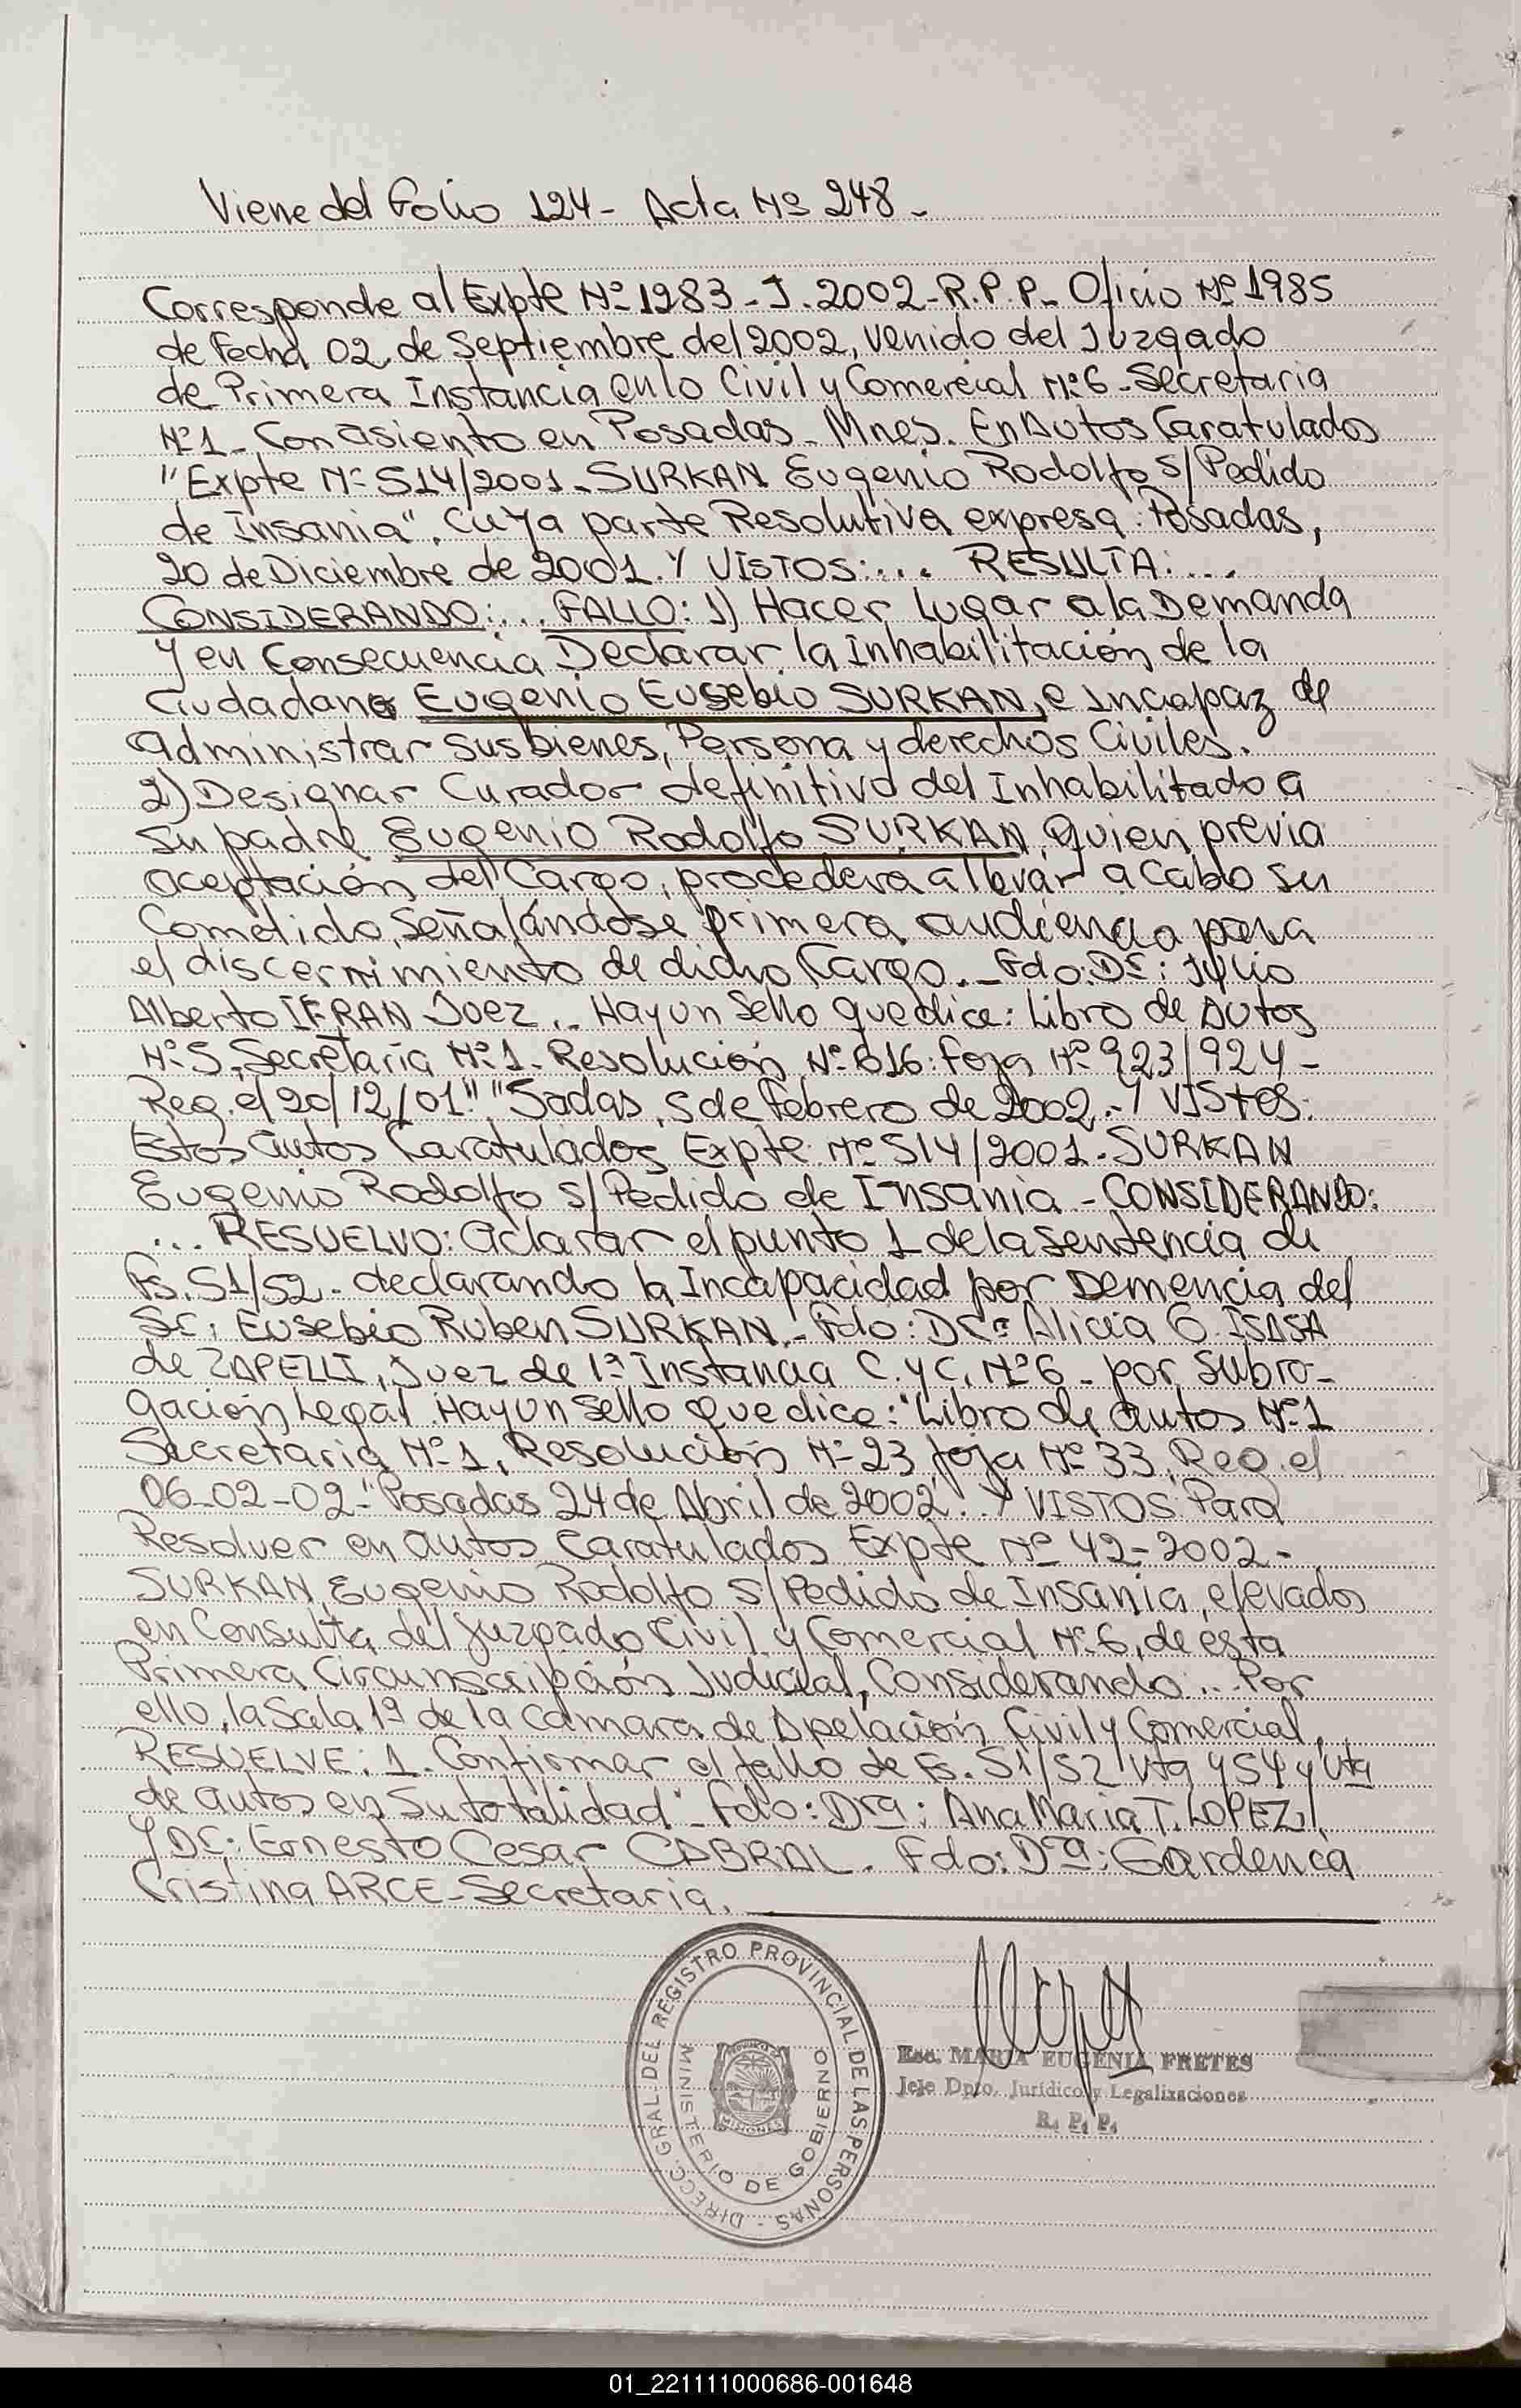 Viene del Folio 124 - Acta Nº 248 -
Corresponde al Expte Nº 1983 - J. 2002 - R.P.P - Oficio Nº 1985
de Fecha 02 de Septiembre del 2002, Venido del Juzgado
de Primera Instancia en lo Civil y Comercial Nº 6 - Secretaria
Nº 1 - Con asiento en Posadas - Mnes. En Autos Caratulados
"Expte Nº 514/2001 - SURKAN Eugenio Rodolfo S/ Pedido
de Insania", Cuya parte Resolutiva expresa: Posadas,
20 de Diciembre de 2001. Y VISTOS:... RESULTA:...
CONSIDERANDO:... FALLO: 1) Hacer lugar a la Demanda
y en Consecuencia Declarar la Inhabilitación de la
Ciudadano Eugenio Eusebio SURKAN, e Incapaz de
Administrar sus bienes, Persona y derechos Civiles.
2) Designar Curador definitivo del Inhabilitado a
su padre Eugenio Rodolfo SURKAN, quien previa
aceptación del Cargo, procederá a llevar a Cabo su
Cometido, Señalándose primera audiencia para
el discernimiento de dicho Cargo. - Fdo: Dr: Julio
Alberto IFRAN Juez. - Hay un Sello que dice: Libro de Autos
Nº 5, Secretaría Nº 1 - Resolución Nº 816: foja Nº 923/924 -
Reg. el 20/12/01" "Sadas, 5 de Febrero de 2002. - Y VISTOS:
Estos autos Caratulados Expte Nº 514/2001 - SURKAN
Eugenio Rodolfo S/ Pedido de Insania - CONSIDERANDO:
... RESUELVO: aclarar el punto 1 de la Sentencia de
Fs. 51/52 - declarando la Incapacidad por Demencia del
Sr: Eusebio Ruben SURKAN. - Fdo: Dra Alicia G ISASA
de ZAPELLI, Juez de 1ª Instancia C. y C. Nº 6 - por Subro-
gación Legal. Hay un Sello que dice: "Libro de autos Nº 1
Secretaria Nº 1, Resolución Nº 23 foja Nº 33, Reg. el
06-02-02 - "Posadas 24 de Abril de 2002.. Y VISTOS Para
Resolver en autos Caratulados Expte Nº 42-2002 -
SURKAN, Eugenio Rodolfo S/ Pedido de Insania, elevados
en Consulta del Juzgado Civil y Comercial Nº 6, de esta
Primera Circunscripción Judicial, Considerando:... Por
ello, la Sala 1ª de la Camara de Apelación Civil y Comercial,
RESUELVE: 1. Confirmar el fallo de Fs. 51/52 Vta y 54 y Vta
de autos en Su totalidad" - Fdo: Dra: Ana Maria T. LOPEZ
Y Dr: Ernesto Cesar CABRAL. Fdo: Dra: Gardenca
Cristina ARCE - Secretaria.
DIRECC. GRAL. DEL REGISTRO PROVINCIAL DE LAS PERSONAS -
MINISTERIO DE GOBIERNO
MISIONES
Esc. MARIA EUGENIA FRETES
Jefe Dpto. Jurídico y Legalizaciones
R. P. P.
01_221111000686-001648